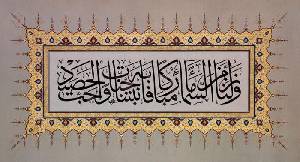 وَنَزَّلْنَا مِنَ السَّمَاءِ مَاءً مُبَارَكًا فَأَنْبَتْنَا بِهِ جَنَّاتٍ وَحَبَّ الْحَصِيدِ